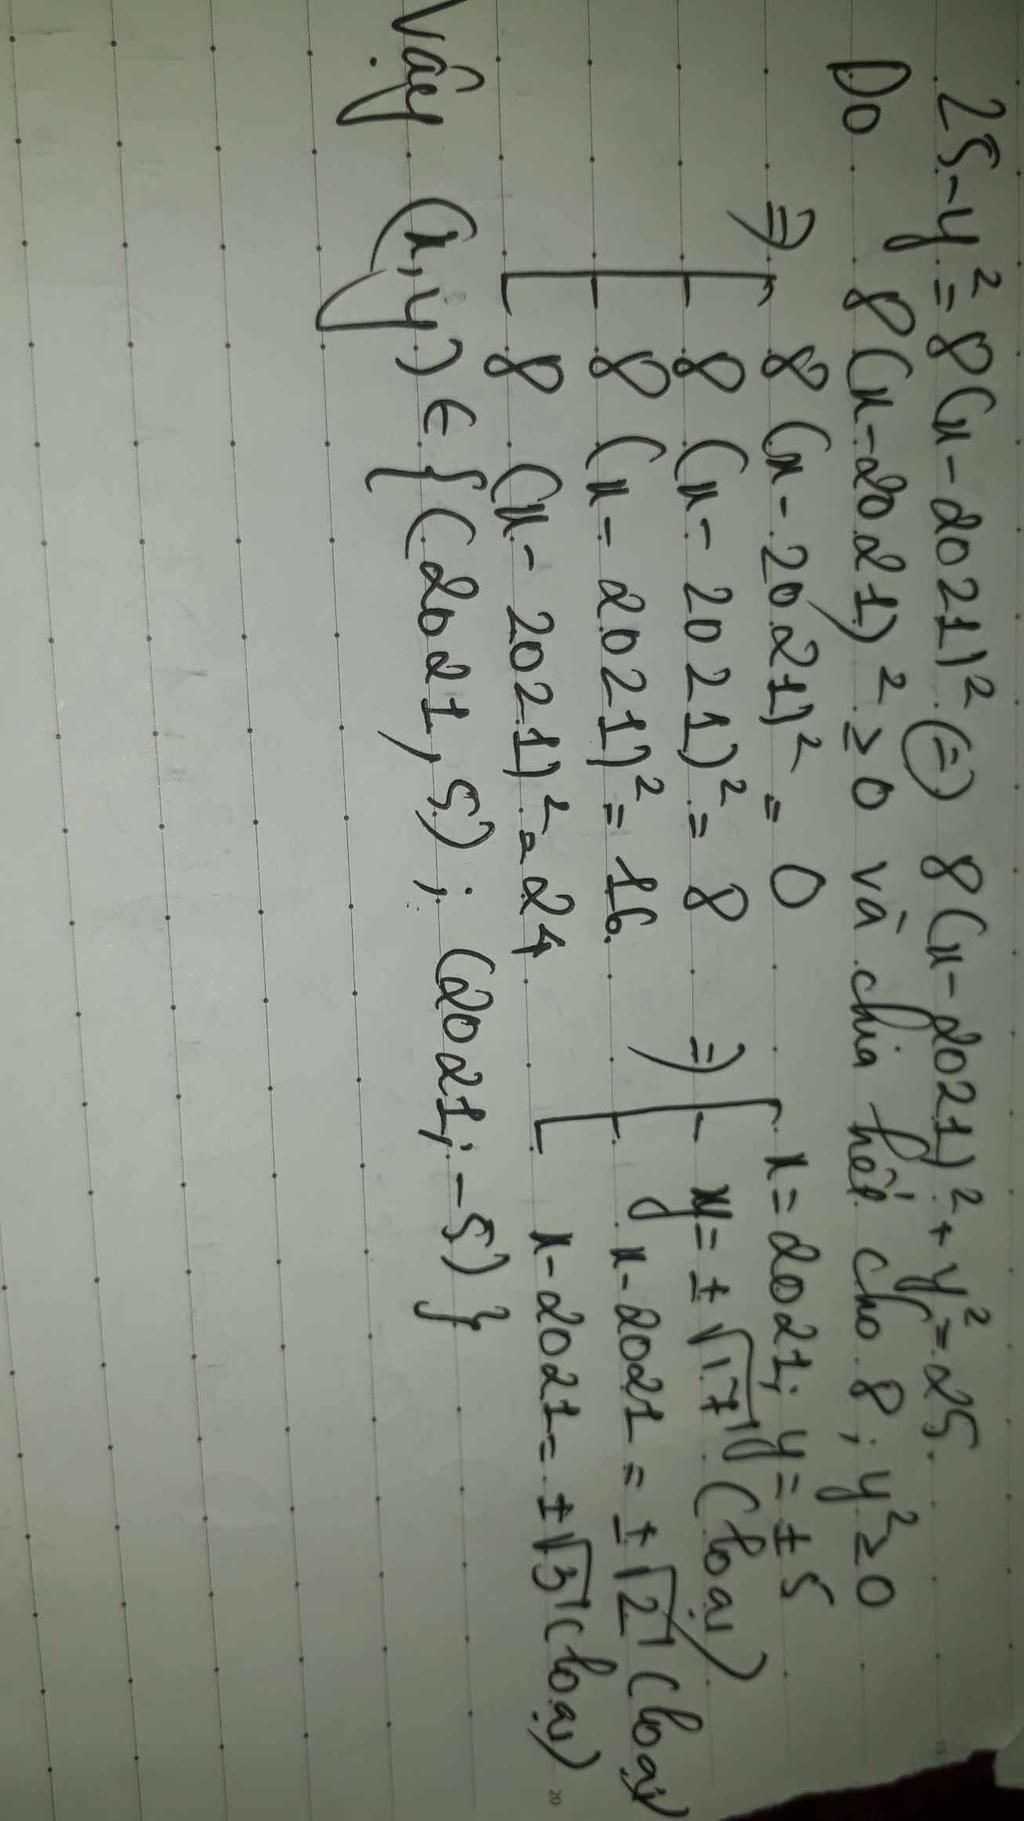 25-y² = 8(x-2021)² (=) 8(x-2021)² + y² = 25.
Do 8(x-2021)² ≥ 0 và chia hết cho 8; y² ≥ 0
=) 8(x-2021)² = 0
8(x-2021)² = 8
8(x-2021)² = 16
8(x-2021)² = 24
=) x = 2021; y = ±5
y = ±√17 (loại)
x-2021 = ±√2 (loại)
x-2021 = ±√3 (loại)
Vậy (x,y) ∈ {(2021,5); (2021;-5)}
20